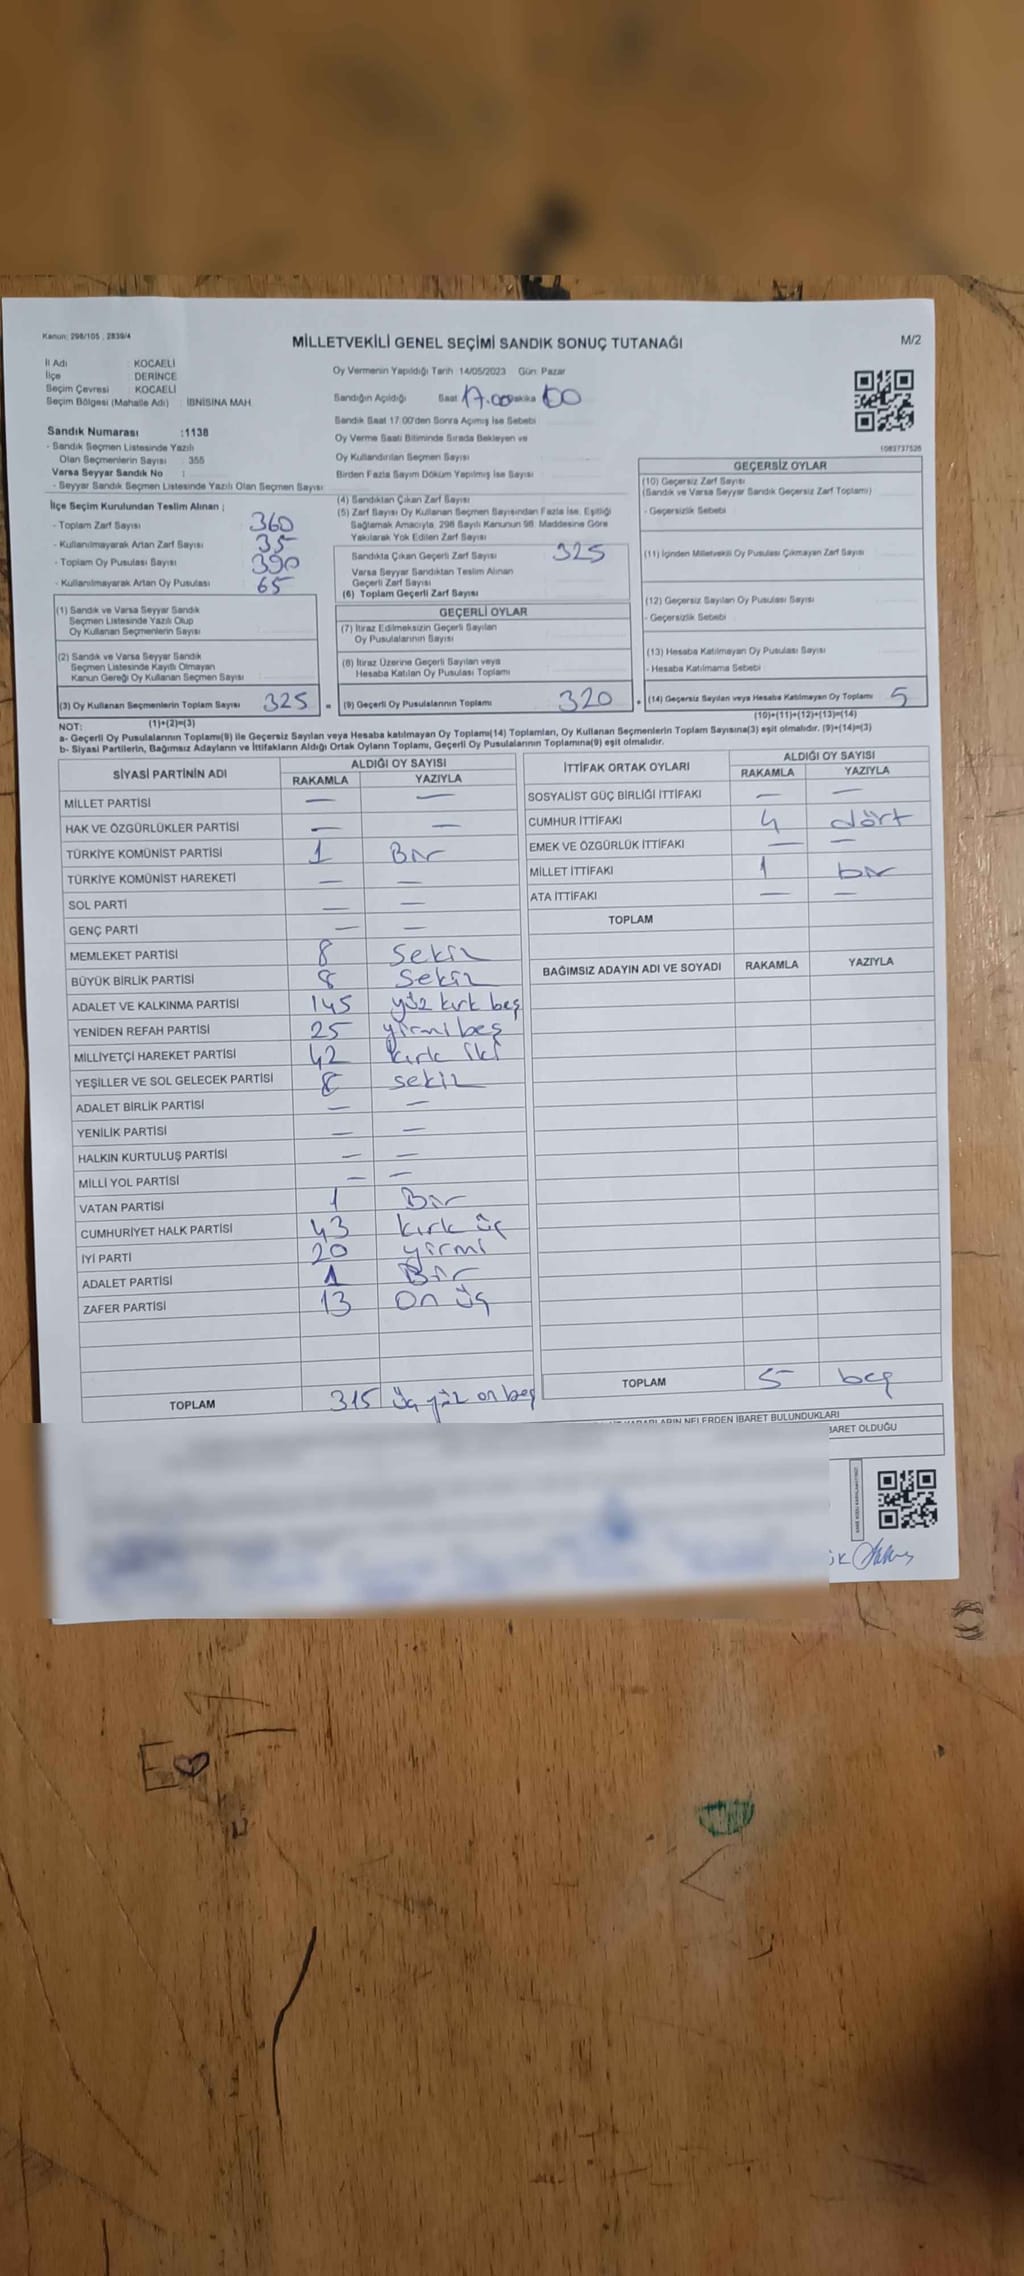 Kanun: 298/105 , 2839/4
MİLLETVEKİLİ GENEL SEÇİMİ SANDIK SONUÇ TUTANAĞI
M/2
İl Adı : KOCAELİ
İlçe : DERİNCE
Seçim Çevresi : KOCAELİ
Seçim Bölgesi (Mahalle Adı) : İBNİSİNA MAH.
Sandık Numarası :1138
- Sandık Seçmen Listesinde Yazılı
Olan Seçmenlerin Sayısı : 355
Varsa Seyyar Sandık No :
- Seyyar Sandık Seçmen Listesinde Yazılı Olan Seçmen Sayısı:
İlçe Seçim Kurulundan Teslim Alınan ;
- Toplam Zarf Sayısı 360
- Kullanılmayarak Artan Zarf Sayısı 35
- Toplam Oy Pusulası Sayısı 390
- Kullanılmayarak Artan Oy Pusulası 65
(1) Sandık ve Varsa Seyyar Sandık
Seçmen Listesinde Yazılı Olup
Oy Kullanan Seçmenlerin Sayısı
(2) Sandık ve Varsa Seyyar Sandık
Seçmen Listesinde Kayıtlı Olmayan
Kanun Gereği Oy Kullanan Seçmen Sayısı
(3) Oy Kullanan Seçmenlerin Toplam Sayısı 325
(1)+(2)=(3)
Oy Vermenin Yapıldığı Tarih 14/05/2023 Gün: Pazar
Sandığın Açıldığı Saat 17.00 Dakika 00
Sandık Saat 17:00'den Sonra Açımış İse Sebebi
Oy Verme Saati Bitiminde Sırada Bekleyen ve
Oy Kullandırılan Seçmen Sayısı
Birden Fazla Sayım Döküm Yapılmış İse Sayısı
(4) Sandıktan Çıkan Zarf Sayısı
(5) Zarf Sayısı Oy Kullanan Seçmen Sayısından Fazla İse, Eşitliği
Sağlamak Amacıyla, 298 Sayılı Kanunun 98. Maddesine Göre
Yakılarak Yok Edilen Zarf Sayısı
Sandıkta Çıkan Geçerli Zarf Sayısı 325
Varsa Seyyar Sandıktan Teslim Alınan
Geçerli Zarf Sayısı
(6) Toplam Geçerli Zarf Sayısı
GEÇERLİ OYLAR
(7) İtiraz Edilmeksizin Geçerli Sayılan
Oy Pusulalarının Sayısı
(8) İtiraz Üzerine Geçerli Sayılan veya
Hesaba Katılan Oy Pusulası Toplamı
(9) Geçerli Oy Pusulalarının Toplamı 320
1082737526
GEÇERSİZ OYLAR
(10) Geçersiz Zarf Sayısı
(Sandık ve Varsa Seyyar Sandık Geçersiz Zarf Toplamı)
- Geçersizlik Sebebi
(11) İçinden Milletvekili Oy Pusulası Çıkmayan Zarf Sayısı
(12) Geçersiz Sayılan Oy Pusulası Sayısı
- Geçersizlik Sebebi
(13) Hesaba Katılmayan Oy Pusulası Sayısı
- Hesaba Katılmama Sebebi
(14) Geçersiz Sayılan veya Hesaba Katılmayan Oy Toplamı 5
(10)+(11)+(12)+(13)=(14)
NOT:
a- Geçerli Oy Pusulalarının Toplamı(9) ile Geçersiz Sayılan veya Hesaba katılmayan Oy Toplamı(14) Toplamları, Oy Kullanan Seçmenlerin Toplam Sayısına(3) eşit olmalıdır. (9)+(14)=(3)
b- Siyasi Partilerin, Bağımsız Adayların ve İttifakların Aldığı Ortak Oyların Toplamı, Geçerli Oy Pusulalarının Toplamına(9) eşit olmalıdır.
SİYASİ PARTİNİN ADI ALDIĞI OY SAYISI
RAKAMLA YAZIYLA
MİLLET PARTİSİ — —
HAK VE ÖZGÜRLÜKLER PARTİSİ — —
TÜRKİYE KOMÜNİST PARTİSİ 1 Bir
TÜRKİYE KOMÜNİST HAREKETİ — —
SOL PARTİ — —
GENÇ PARTİ — —
MEMLEKET PARTİSİ 8 Sekiz
BÜYÜK BİRLİK PARTİSİ 8 Sekiz
ADALET VE KALKINMA PARTİSİ 145 yüz kırk beş
YENİDEN REFAH PARTİSİ 25 yirmi beş
MİLLİYETÇİ HAREKET PARTİSİ 42 kırk iki
YEŞİLLER VE SOL GELECEK PARTİSİ 8 sekiz
ADALET BİRLİK PARTİSİ — —
YENİLİK PARTİSİ — —
HALKIN KURTULUŞ PARTİSİ — —
MİLLİ YOL PARTİSİ — —
VATAN PARTİSİ 1 Bir
CUMHURİYET HALK PARTİSİ 43 kırk üç
İYİ PARTİ 20 yirmi
ADALET PARTİSİ 1 Bir
ZAFER PARTİSİ 13 On üç
TOPLAM 315 üç yüz on beş
İTTİFAK ORTAK OYLARI ALDIĞI OY SAYISI
RAKAMLA YAZIYLA
SOSYALİST GÜÇ BİRLİĞİ İTTİFAKI — —
CUMHUR İTTİFAKI 4 dört
EMEK VE ÖZGÜRLÜK İTTİFAKI — —
MİLLET İTTİFAKI 1 bir
ATA İTTİFAKI — —
TOPLAM
BAĞIMSIZ ADAYIN ADI VE SOYADI RAKAMLA YAZIYLA
TOPLAM 5 beş
NELERDEN İBARET BULUNDUKLARI
BARET OLDUĞU
E